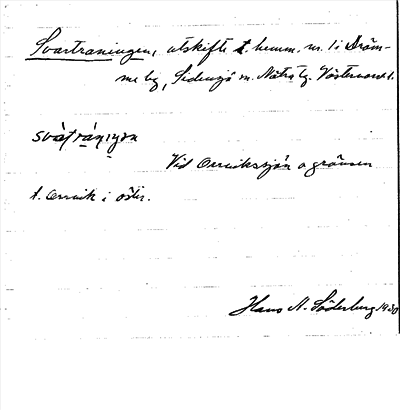 Svartraningen, utskifte t. hemm. nr. 1 i Dräm-
me by, Sidensjö sn. Nätra tg. Västernorrl.
svàtrániŋən
Vid Orrvikssjön o gränsen
t. Orrvik i öster.
Hans N. Söderberg 1930